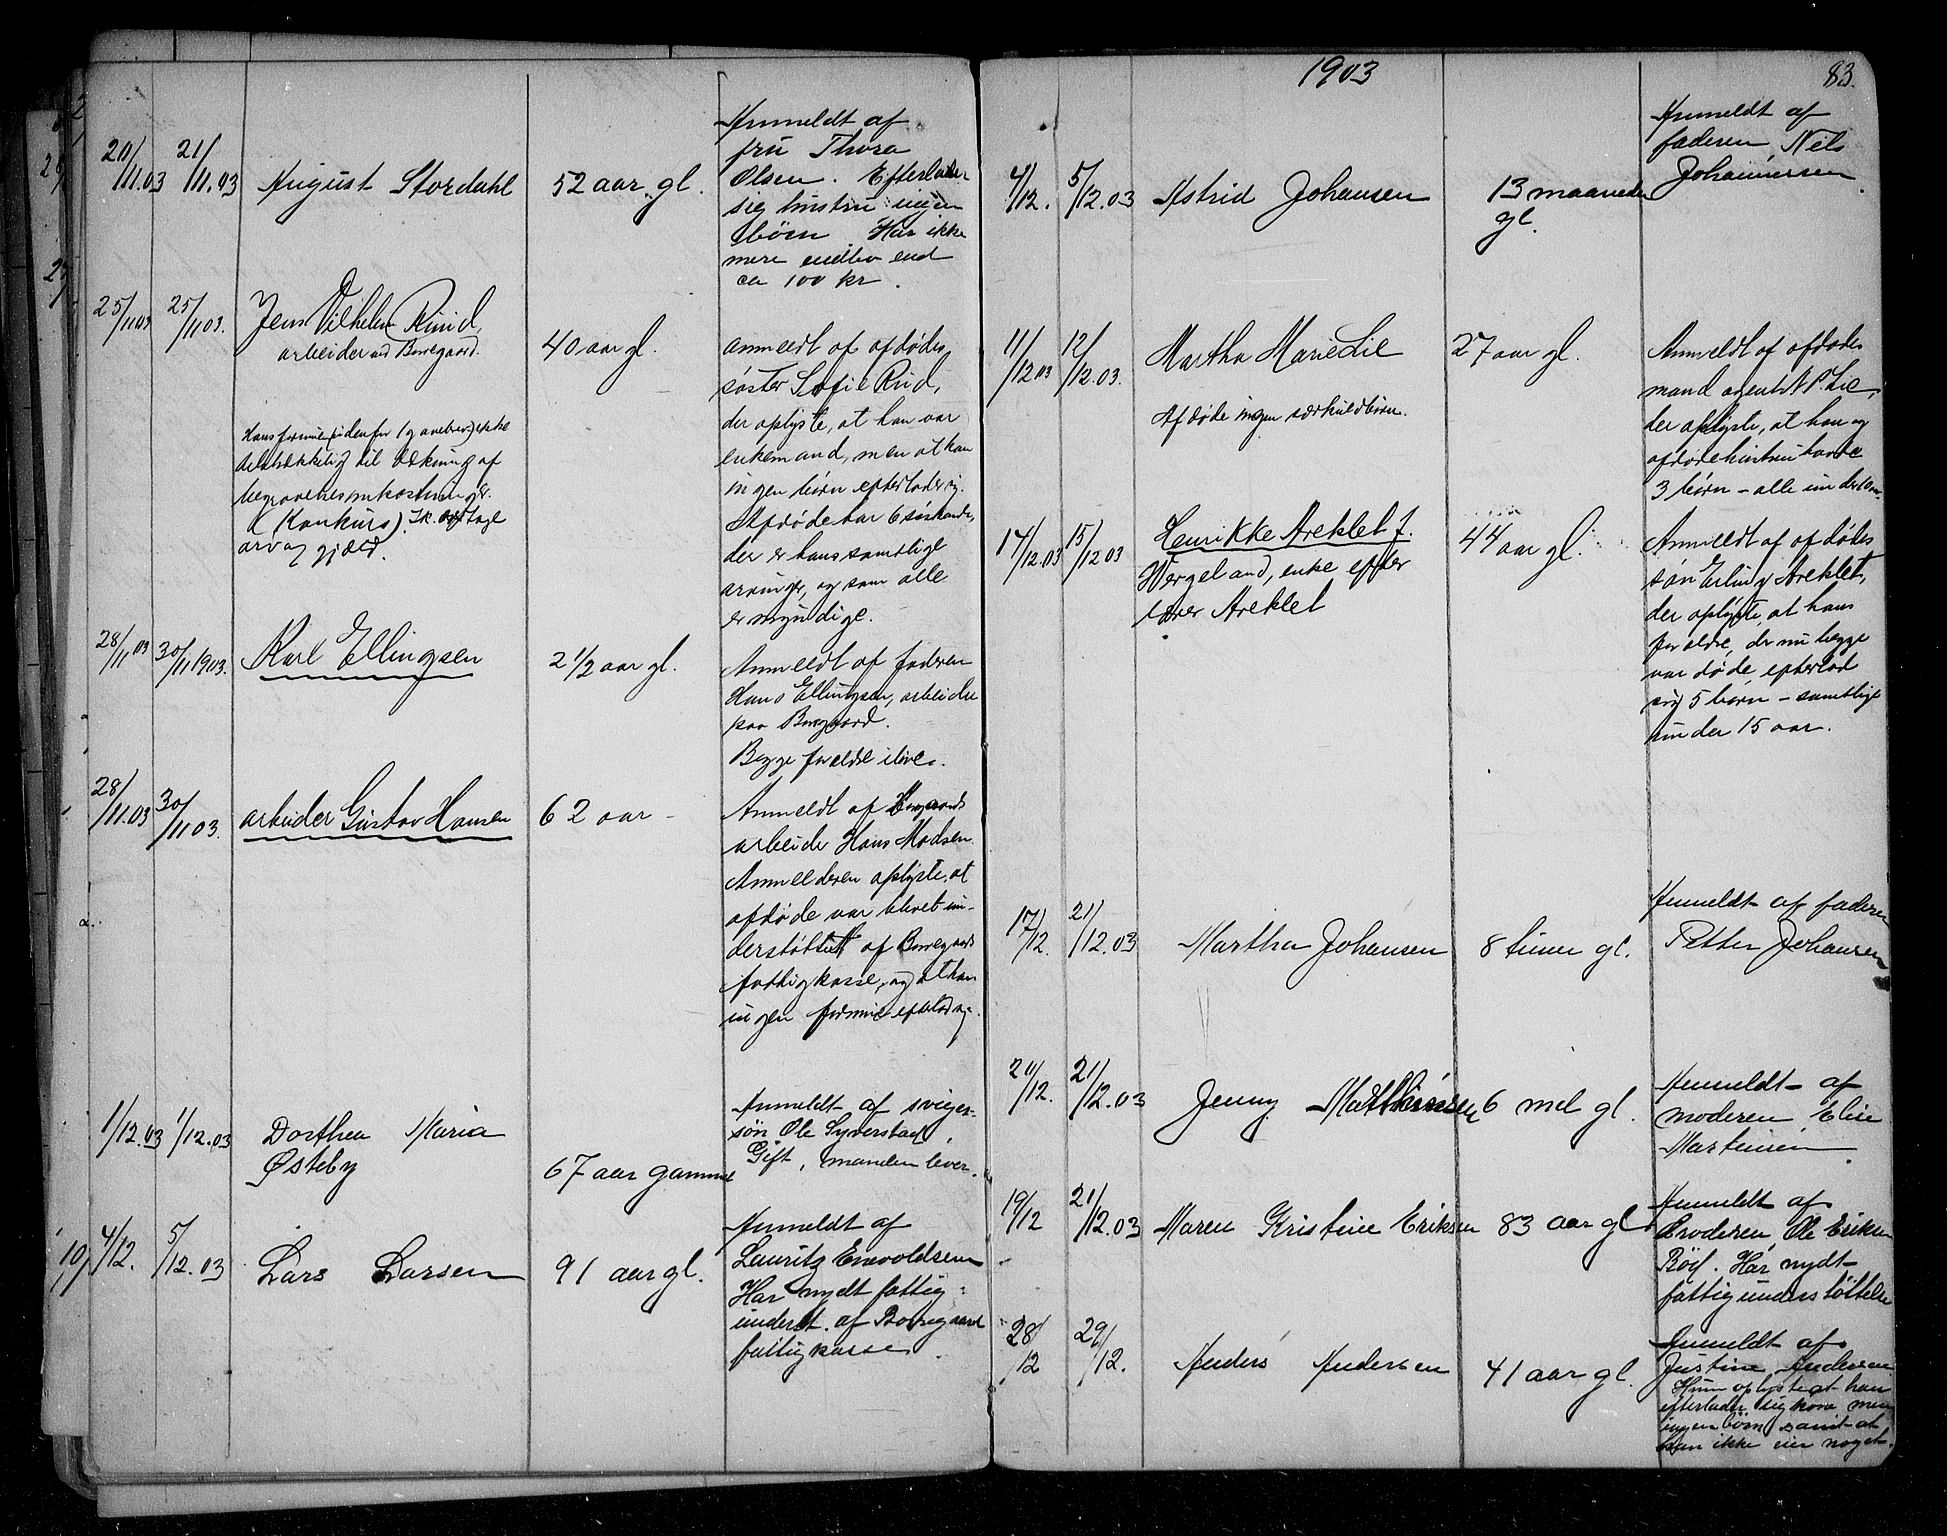 20/11.03 21/11.03 August Stordahl 52 aar gl.
Anmeldt af
fru Thora
Olsen. Efterlader
sig hustru ingen
børn Har ikke
mere endbo end
ca 100 kr.
25/11 03 25/11 03. Jens Vilhelm Rud,
arbeider ved Borregaard.
40 aar gl.
anmeldt af afdødes
søster Sofie Rud,
der oplyste, at han var
enkemand, men at han
ingen børn efterlader sig.
Afdøde har 6 søskende,
der er hans samtlige
arvinger, og som alle
er myndige.
Hans formue
tilstrækkelig til dækning af
begravelsesomkostninger.
(Konkurs). overtage
arv og gjæld.
28/11 03 30/11 1903. Karl Ellingsen 2 1/2 aar gl.
Anmeldt af faderen
Hans Ellingsen, arbeider
paa Borregaard.
Begge forældre ilive.
28/11.03 30/11 03. arbeider Gustav Hansen 62 aar -
Anmeldt af Borregaards
arbeider Hans Madsen.
Anmelderen oplyste, at
afdøde var blevet un-
derstøttet af Borregaards
fattigkasse, og at han
ingen formue efterlod sig.
1/12.03 1/12.03 Dorthea Maria
Østeby
67 aar gammel
Anmeldt af sviger-
søn Ole Syverstad,
Gift, manden lever.
4/12. 5/12.03 Lars Larsen 91 aar gl.
Anmeldt af
Lauritz Enevoldsen
Har nydt fattig-
underst. af Borregaard
fattigkasse.
1903
83.
4/12. 5/12.03 Astrid Johansen 13 maaneder
gl.
Anmeldt af
faderen, Nils
Johannesen.
11/12 03 12/12.03. Martha Marie Lie 27 aar gl.
Afdøde ingen særkuldbørn.
Anmeldt af afdødes
mand agent N P. Lie,
der oplyste, at han og
afdøde hustru havde
3 børn – alle under
14/12.03 15/12 03 Henrikke Areklet f.
Wergeland, enke efter
lærer Areklet
44 aar gl.
Anmeldt af afdødes
søn Erling Areklet,
der oplyste, at hans
forældre, der nu begge
var døde, efterlod
sig 5 børn – samtlige
under 15 aar.
17/12. 21/12.03 Martha Johansen 8 timer gl.
Anmeldt af faderen
Petter Johansen
20/12. 21/12.03 Jenny Mathinsen 6 mdl gl.
Anmeldt af
moderen Elise
Martinsen.
19/12 21/12.03 Maren Kristine Eriksen 83 aar gl
Anmeldt af
Broderen, Ole Eriksen
Bøy. Har nydt
fattigunderstøttelse
28/12 29/12. Anders Andersen 41 aar gl.
Anmeldt af
Justine Andersen
Hun oplyste at han
efterlader sig kone men
ingen børn samt at
han ikke eier noget.